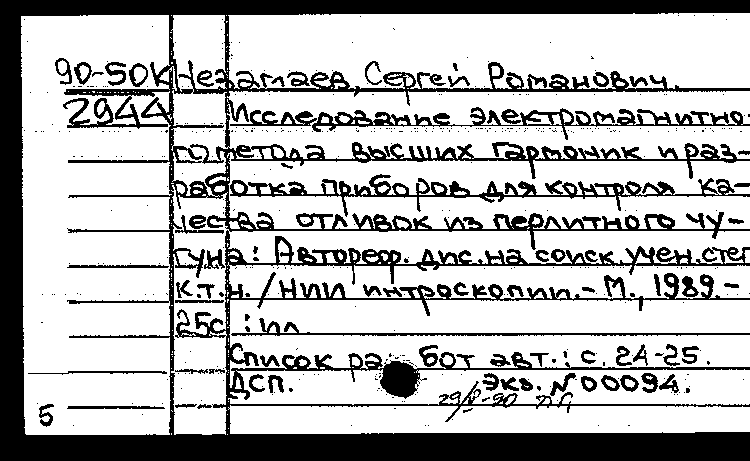 90-50К Незамаев, Сергей Романович.
2944 Исследование электромагнитно-
го метода высших гармоник и раз-
работка приборов для контроля ка-
чества отливок из перлитного чу-
гуна: Автореф. дис. на соиск. учен. степ
к.т.н. / НИИ интроскопии. - М., 1989. -
25с : ил.
Список работ авт.: с. 24-25.
ДСП. Экз. №00094.
5